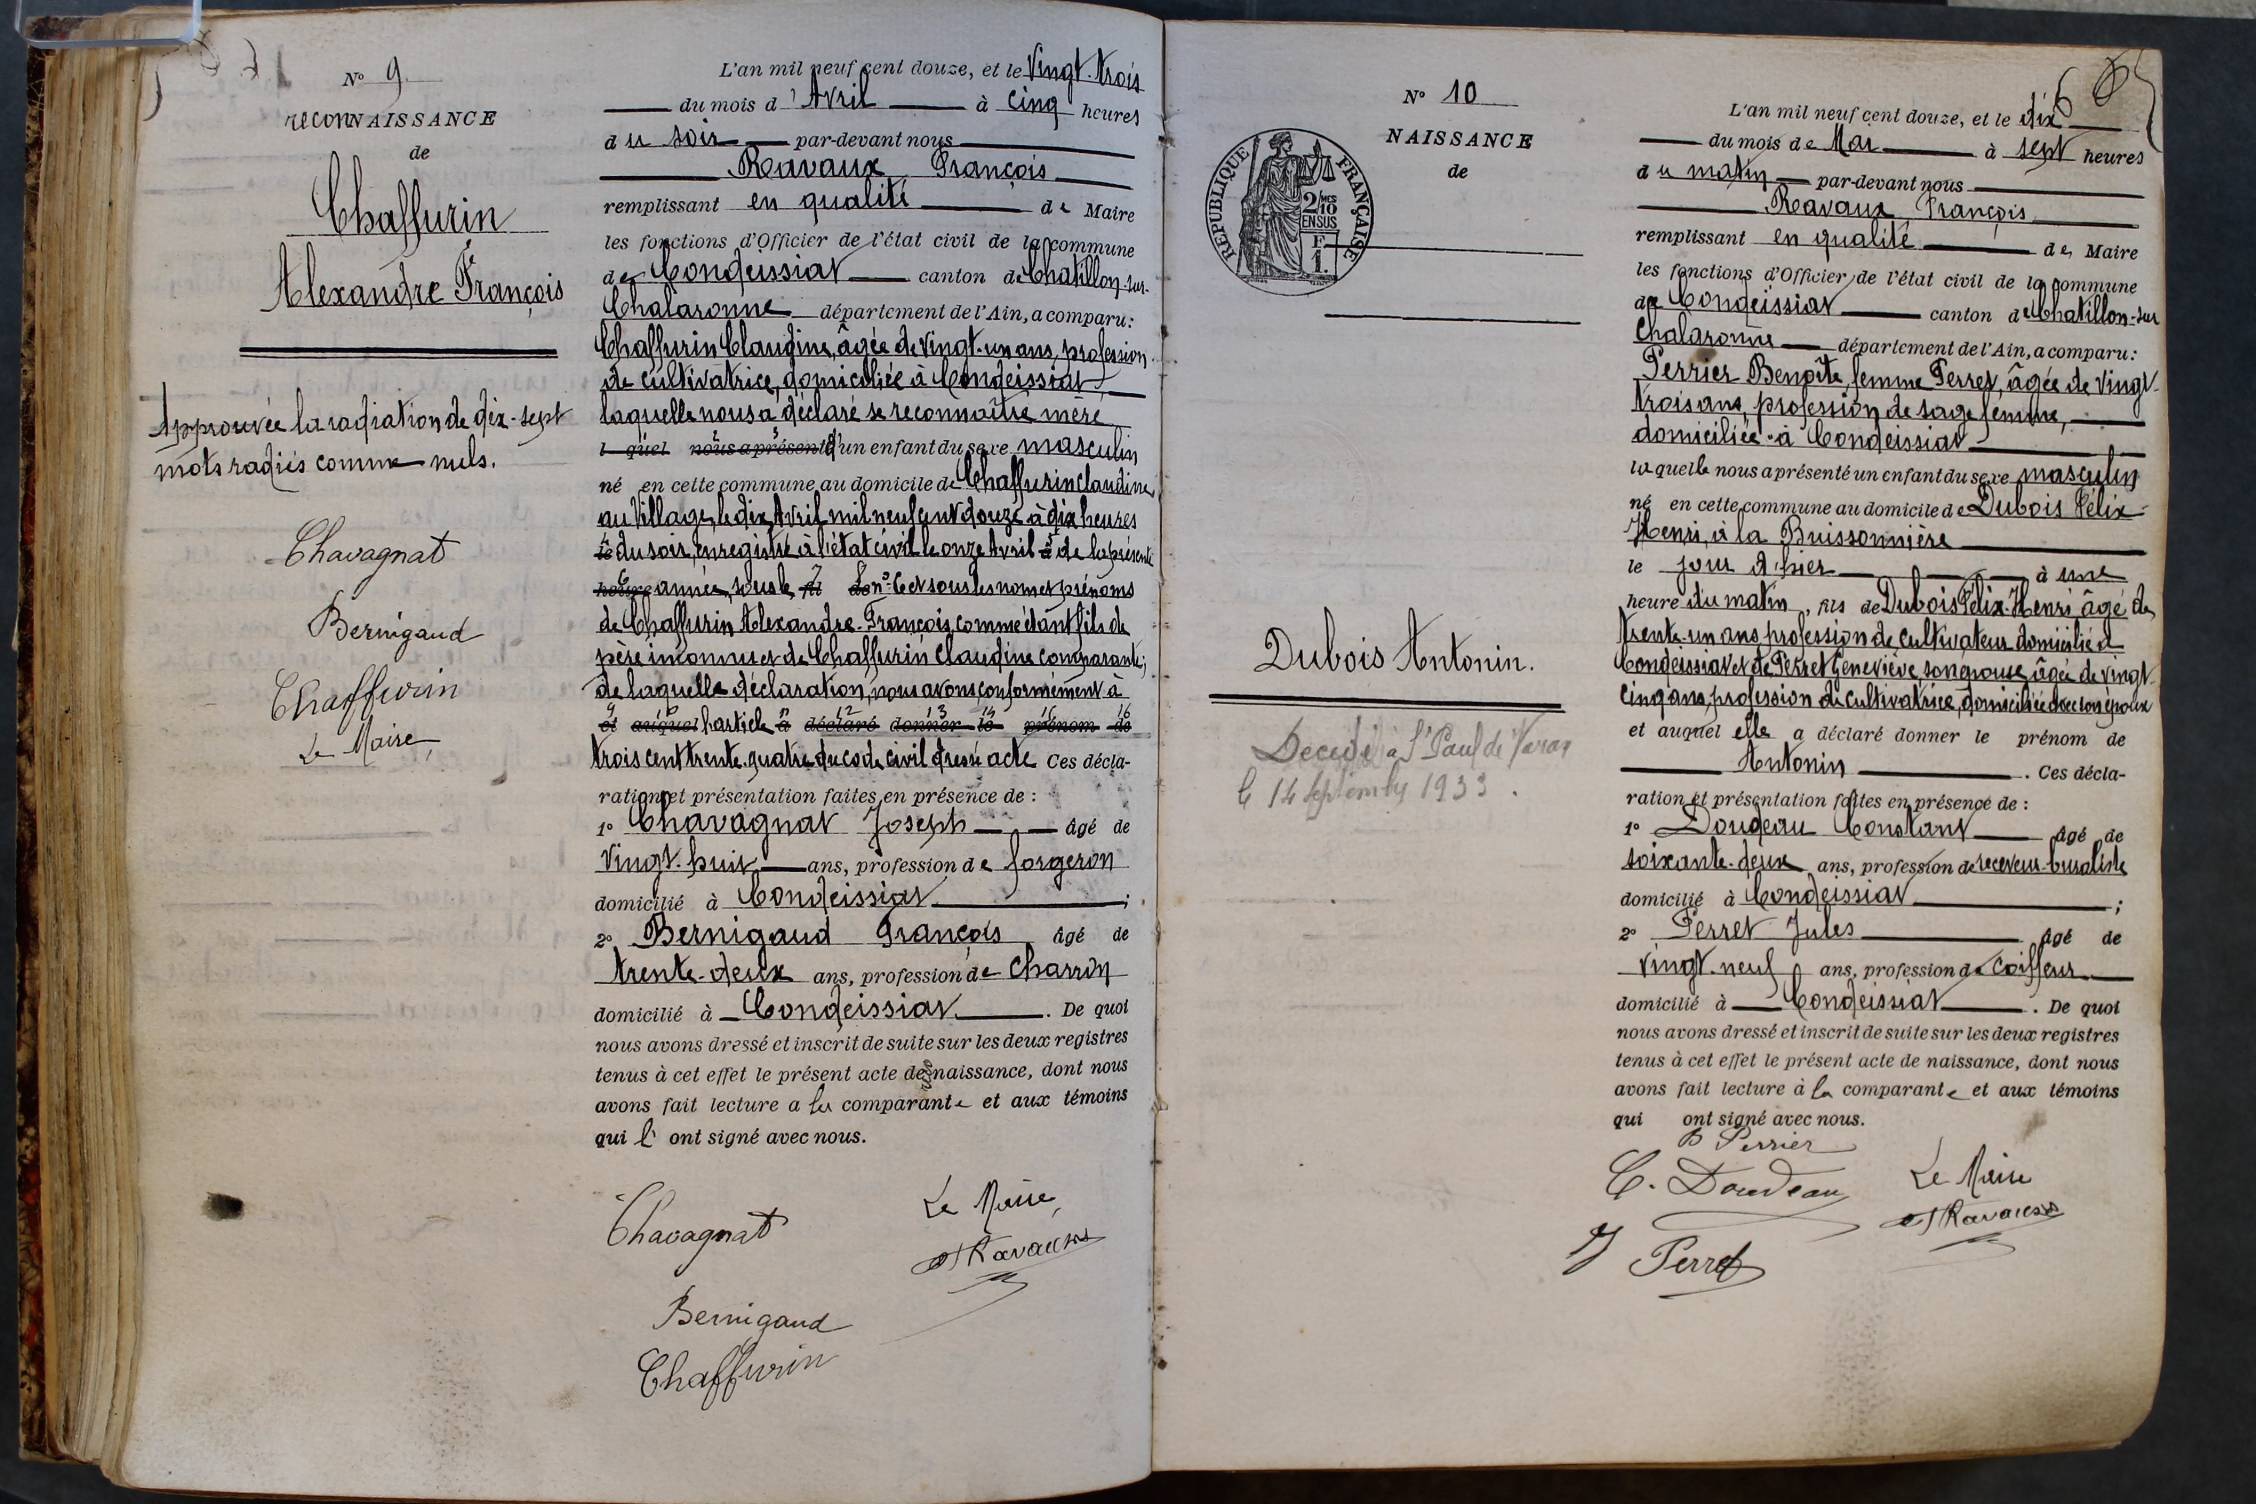 N° 9
reconNAISSANCE
de
Chaffurin
Alexandre François
Approuvée la radiation de dix-sept
mots radiés comme nuls.
Chavagnat
Bernigaud
Chaffurin
Le Maire,
L'an mil neuf cent douze, et le Vingt-trois
du mois d'Avril à cinq heures
du soir par-devant nous
Ravaux François
remplissant en qualité de Maire
les fonctions d'Officier de l'état civil de la commune
de Condeissiat canton de Chatillon-sur-
Chalaronne département de l'Ain, a comparu:
Chaffurin Claudine, âgée de vingt-un ans, profession
de cultivatrice, domiciliée à Condeissiat
laquelle nous a déclaré se reconnaître mère
l quel nous a présenté d'un enfant du sexe masculin
né en cette commune au domicile de Chaffurin Claudine
au Village, le dix Avril mil neuf cent douze à dix heures
le du soir, enregistré à l'état civil le onze Avril à de la présente
heure année, sous le fil de n° 6 et sous les nom et prénoms
de Chaffurin Alexandre-François, comme étant fils de
père inconnu et de Chaffurin Claudine comparante;
de laquelle déclaration, nous avons conformément à
et auquel l'article a déclaré donner le prénom de
trois cent trente-quatre du code civil dressé acte Ces décla-
ration et présentation faites en présence de :
1° Chavagnat Joseph âgé de
vingt-huit ans, profession de forgeron
domicilié à Condeissiat ;
2° Bernigaud François âgé de
trente-deux ans, profession de charron
domicilié à Condeissiat. De quoi
nous avons dressé et inscrit de suite sur les deux registres
tenus à cet effet le présent acte de naissance, dont nous
avons fait lecture à la comparante et aux témoins
qui l' ont signé avec nous.
Chavagnat
Le Maire,
F Ravaux
Bernigaud
Chaffurin
N° 10
NAISSANCE
de
REPUBLIQUE FRANÇAISE
2/10 MES
EN SUS
F
1.
Dubois Antonin.
Decede à St Paul de Varax
le 14 septembre 1933.
6
L'an mil neuf cent douze, et le dix
du mois de Mai à sept heures
du matin par-devant nous
Ravaux François
remplissant en qualité de Maire
les fonctions d'Officier de l'état civil de la commune
de Condeissiat canton de Chatillon-sur
Chalaronne département de l'Ain, a comparu:
Perrier Benoîte, femme Perret, âgée de vingt-
trois ans, profession de sage femme,
domiciliée à Condeissiat
laquelle nous a présenté un enfant du sexe masculin
né en cette commune au domicile de Dubois Félix-
Henri, à la Buissonnière
le jour d'hier à une
heure du matin, fils de Dubois Félix-Henri âgé de
trente-un ans profession de cultivateur domicilié à
Condeissiat et de Perret Geneviève son épouse, âgée de vingt-
cinq ans, profession de cultivatrice, domiciliée avec son époux
et auquel elle a déclaré donner le prénom de
Antonin. Ces décla-
ration et présentation faites en présence de :
1° Doudeau Constant âgé de
soixante-deux ans, profession de receveur-buraliste
domicilié à Condeissiat ;
2° Perret Jules âgé de
vingt-neuf ans, profession de coiffeur
domicilié à Condeissiat. De quoi
nous avons dressé et inscrit de suite sur les deux registres
tenus à cet effet le présent acte de naissance, dont nous
avons fait lecture à la comparante et aux témoins
qui ont signé avec nous.
B Perrier
C. Doudeau
Le Maire
F Ravaux
J Perret